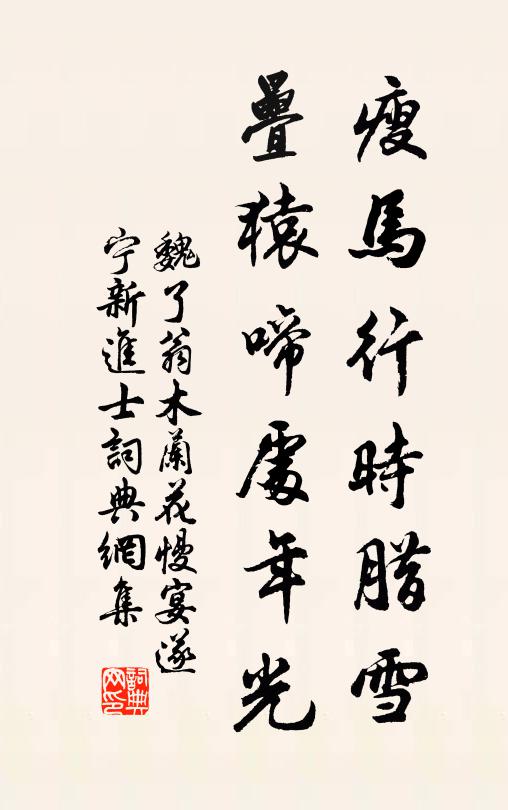 瘦馬行時腊雪
疊猿啼處年光
魏了翁木蘭花慢宴遂
宁新進士詞典網集
詞典
网印